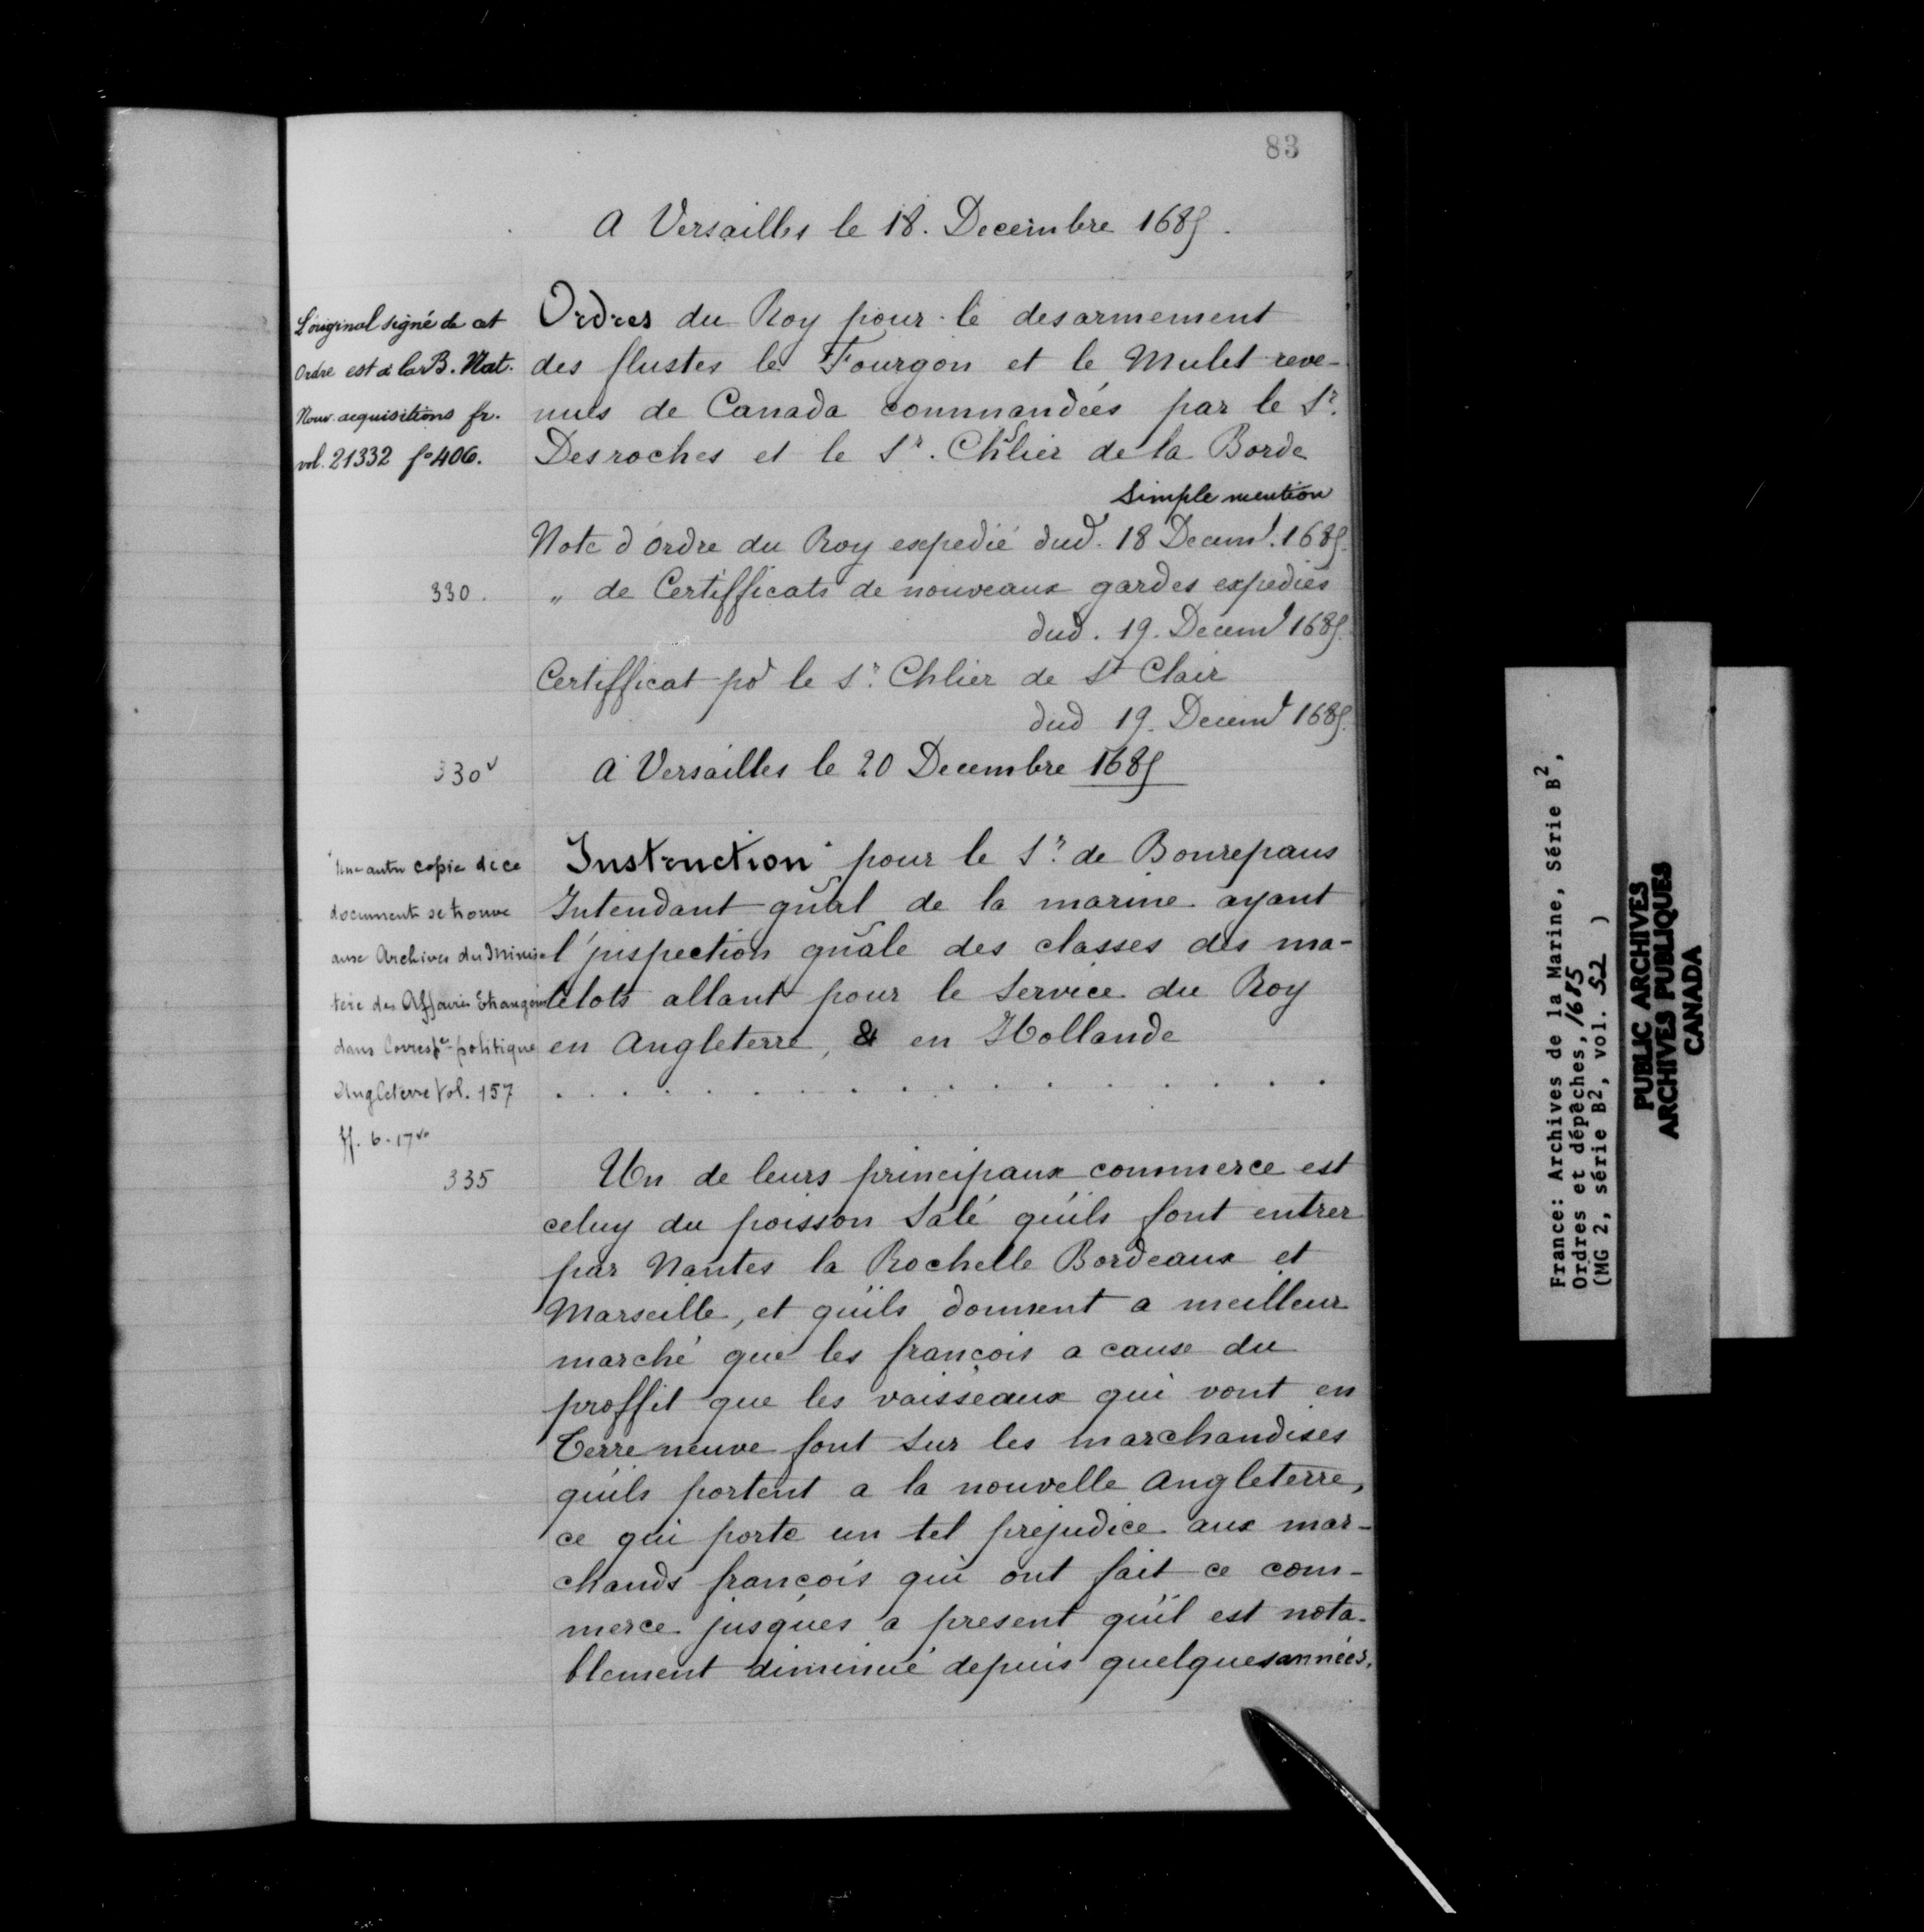 83
A Versailles le 18. Decembre 1685.
L'original signé de cet
Ordre est à la B. Nat.
Nouv. acquisitions fr.
vol. 21332 f° 406.
Ordres du Roy pour le desarmement
des flustes le Fourgon et le Mulet reve-
nues de Canada commandées par le Sr.
Desroches et le Sr. Chlier de la Borde
Simple mention
Note d'ordre du Roy expedié dud. 18 Decemb. 1685.
330. „ de Certifficats de nouveaux gardes expediés
dud. 19. Decemb 1685.
Certifficat po le Sr. Chlier de St Clair
dud 19. Decemb 1685.
330v A Versailles le 20 Decembre 1685
Une autre copie de ce
document se trouve
aux Archives du Minis-
tère des Affaires Etrangères
dans Correspce politique
Angleterre Vol. 157
ff. 6-17vo
Instruction pour le Sr. de Bonrepaus
Intendant gnāl de la marine ayant
l'jnspection gnāle des classes des ma-
telots allant pour le Service du Roy
en Angleterre, & en Hollande
. . . . . . . . . . . . . . . .
335 Un de leurs principaux commerce est
celuy du poisson Salé qu'ils font entrer
par Nantes la Rochelle Bordeaux et
Marseille, et qu'ils donnent a meilleur
marché que les françois a cause du
proffit que les vaisseaux qui vont en
Terre neuve font Sur les marchandises
qu'ils portent a la nouvelle Angleterre,
ce qui porte un tel prejudice aux mar-
chands françois qui ont fait ce com-
merce jusques a present qu'il est nota-
blement diminué depuis quelques années.
France: Archives de la Marine, Série B2,
Ordres et dépêches, 1685
(MG 2, série B2, vol. 52 )
PUBLIC ARCHIVES
ARCHIVES PUBLIQUES
CANADA